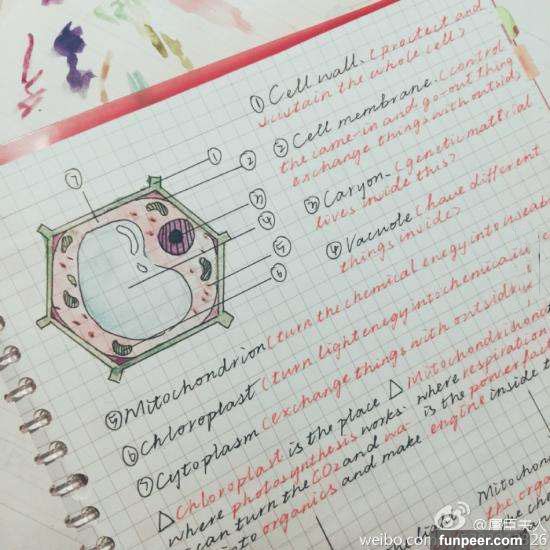 ① Cell wall. (protect and
sustain the whole cell)
② Cell membrane. (control
the came-in and go-out thing
exchange things with outsid
③ Caryon. (genetic material
lives inside this)
④ Vacuole (have different
things inside)
⑤ Mitochondrion (turn the chemical enegy into useab
⑥ Chloroplast (turn light enegy into chemical
⑦ Cytoplasm (exchange things with outside
△ Chloroplast is the place
where photosynthesis works.
can turn the CO2 and wa
into organics and make
△ Mitochondrion
where respiration
is the powerful
engine inside t
Mitocho
the orga
⑦
①
②
③
④
⑤
⑥
weibo.com
funpeer.com
26